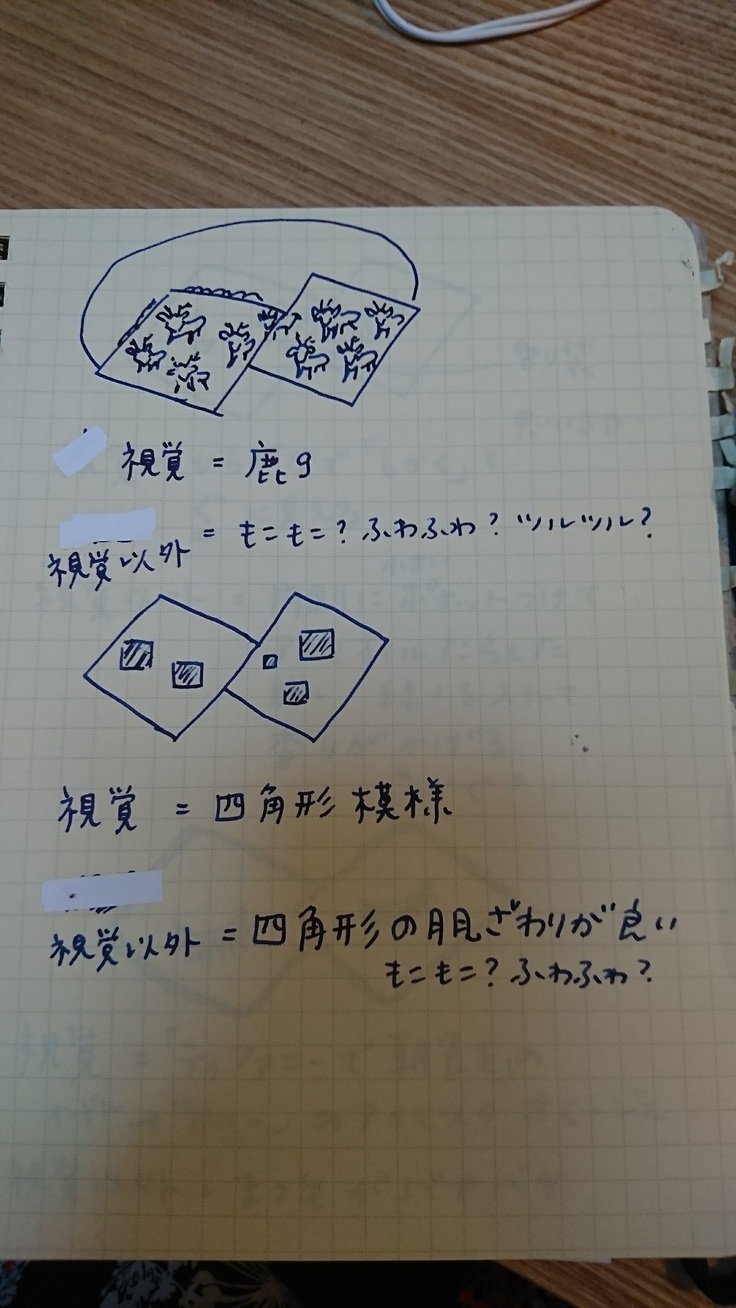 視覚 = 鹿9
視覚以外 = もこもこ？ふわふわ？ツルツル？
視覚 = 四角形模様
視覚以外 = 四角形の肌ざわりが良い
もこもこ？ふわふわ？